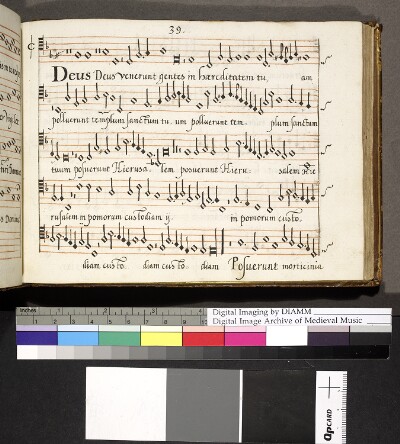 39.
Deus Deus venerunt gentes in hæreditatem tu, am
polluerunt templum sanctum tu, um polluerunt tem. plum sanctum
tuum posuerunt Hierusa. lem posuerunt Hieru. salem Hie
rusalem in pomorum custodiam ij. in pomorum custo.
diam custo. diam custo. diam Posuerunt morticinia
inches 1 2 3 4 5 6 7 8
Digital Imaging by DIAMM
Digital Image Archive of Medieval Music
QPCARD